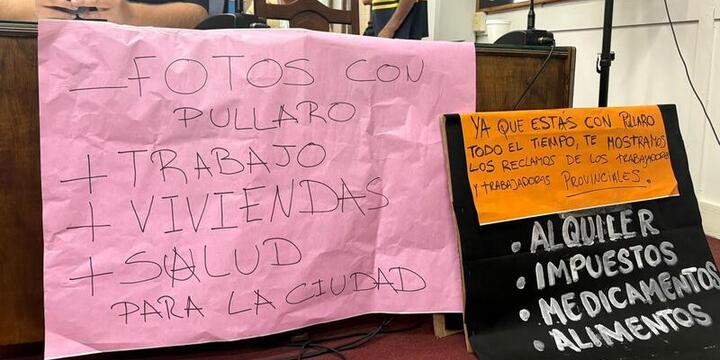 — FOTOS CON
PULLARO
+ TRABAJO
+ VIVIENDAS
+ SALUD
PARA LA CIUDAD
YA QUE ESTAS CON PULLARO
TODO EL TIEMPO, TE MOSTRAMOS
LOS RECLAMOS DE LOS TRABAJADORES
Y TRABAJADORAS PROVINCIALES.
• ALQUILER
• IMPUESTOS
• MEDICAMENTOS
• ALIMENTOS